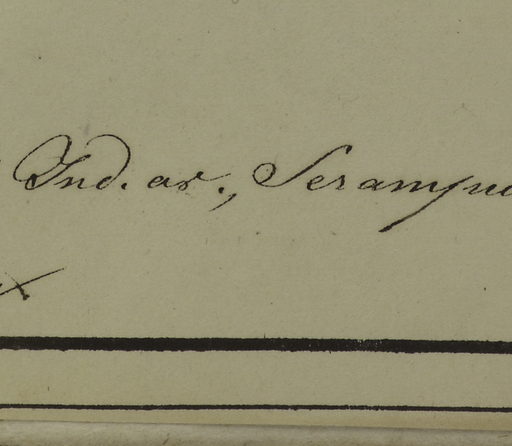 Ind. or., Serampu
x